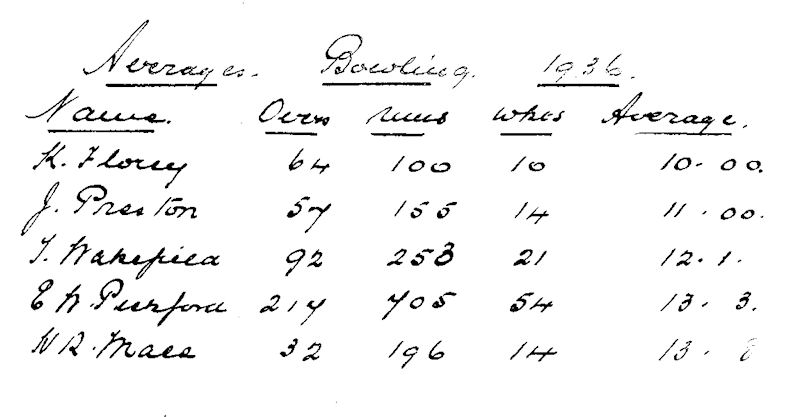 Averages. Bowling. 1936.
Name. Overs runs wkts Average.
K. Florey 64 100 10 10. 00.
J. Preston 57 155 14 11. 00.
T. Wakefield 92 253 21 12. 1.
E W. Purford 217 705 54 13. 3.
H R. Mace 32 196 14 13. 8